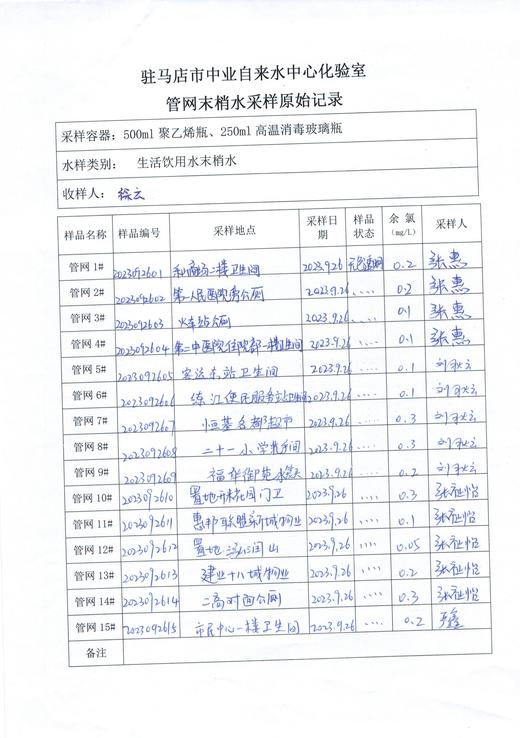 驻马店市中业自来水中心化验室
管网末梢水采样原始记录
采样容器：500ml 聚乙烯瓶、250ml 高温消毒玻璃瓶
水样类别： 生活饮用水末梢水
收样人： 徐云
样品名称 样品编号 采样地点 采样日期 样品状态 余氯(mg/L) 采样人
管网 1# 2023092601 二楼卫生间 2023.9.26 无色透明 0.2 张惠
管网 2# 2023092602 第一人民医院旁公厕 2023.9.26 .... 0.2 张惠
管网 3# 2023092603 火车站公厕 2023.9.26 .... 0.1 张惠
管网 4# 2023092604 第二中医院住院部一楼卫生间 2023.9.26 .... 0.1 张惠
管网 5# 2023092605 客运东站卫生间 2023.9.26 .... 0.1 刘
管网 6# 2023092606 练江便民服务站卫生间 2023.9.26 .... 0.1 刘
管网 7# 2023092607 恒基名都超市 2023.9.26 .... 0.3 刘
管网 8# 2023092608 二十一小学 2023.9.26 .... 0.3 刘
管网 9# 2023092609 福华御苑 2023.9.26 .... 0.2 刘
管网 10# 2023092610 置地 门卫 2023.9.26 .... 0.3 张祉怡
管网 11# 2023092611 惠邦联盟新城物业 2023.9.26 .... 0.1 张祉怡
管网 12# 2023092612 置地 山 2023.9.26 .... 0.05 张祉怡
管网 13# 2023092613 建业十八城物业 2023.9.26 .... 0.2 张祉怡
管网 14# 2023092614 二高对面公厕 2023.9.26 .... 0.3 张祉怡
管网 15# 2023092615 市民中心一楼卫生间 2023.9.26 .... 0.2
备注